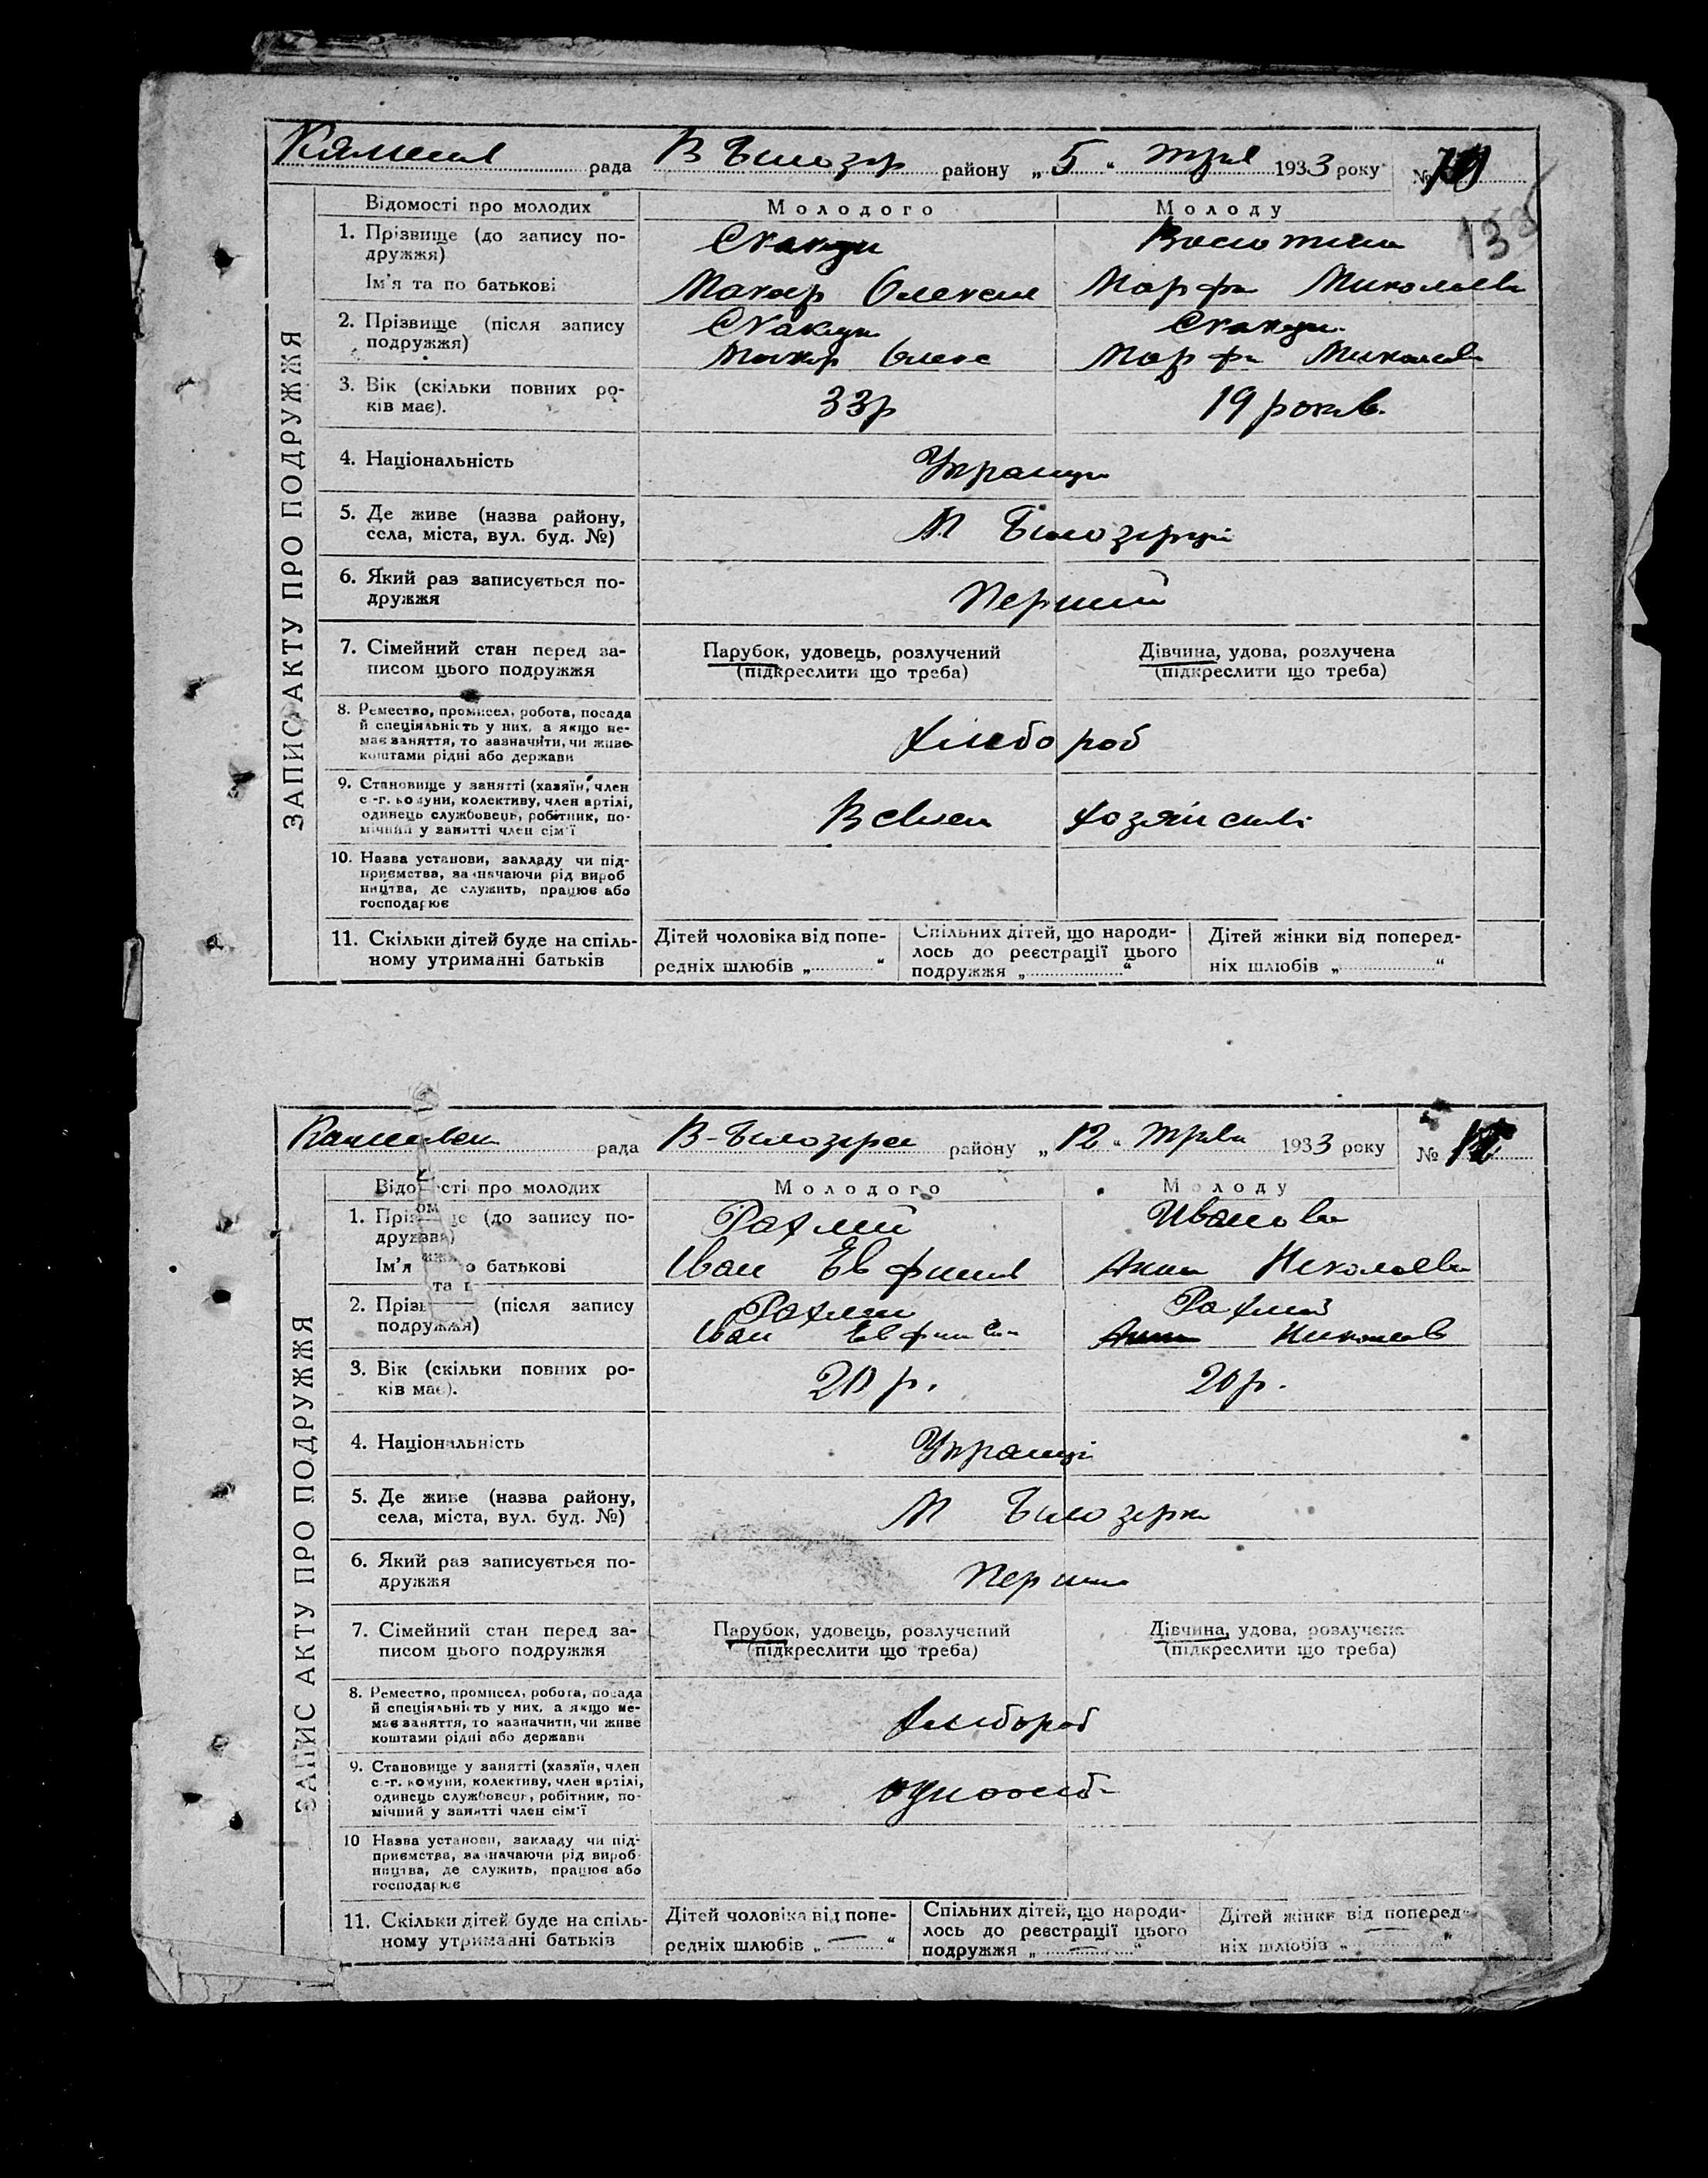 рада В Білозер району „5“ 1933 року №
Відомості про молодих Молодого Молоду
ЗАПИС АКТУ ПРО ПОДРУЖЖЯ
1. Прізвище (до запису по-
дружжя)
Ім'я та по батькові Макар Олексев Марфа Миколаевн
2. Прізвище (після запису
подружжя)
Макар Олекс Марфа Миколаев
3. Вік (скільки повних ро-
ків має). 33р 19 років.
4. Національність Українци
5. Де живе (назва району,
села, міста, вул. буд. №) М Білозерці
6. Який раз записується по-
дружжя Перший
7. Сімейний стан перед за-
писом цього подружжя
Парубок, удовець, розлучений
(підкреслити що треба)
Дівчина, удова, розлучена
(підкреслити що треба)
8. Ремество, промисел, робота, посада
й спеціяльність у них, а якщо не-
має заняття, то зазначити, чи живе
коштами рідні або держави
Хлебороб
9. Становище у занятті (хазяїн, член
с.-г. комуни, колективу, член артілі,
одинець службовець, робітник, по-
мічний у занятті член сім'ї
В своем хозяйстві
10. Назва установи, закладу чи під-
приємства, зазначаючи рід вироб
ництва, де служить, працює або
господарює
11. Скільки дітей буде на спіль-
ному утриманні батьків
Дітей чоловіка від попе-
редніх шлюбів „ “
Спільних дітей, що народи-
лось до реєстрації цього
подружжя „ “
Дітей жінки від поперед-
ніх шлюбів „ “
рада В-Білозерка району „12“ 1933 року №
Відомості про молодих Молодого Молоду
ЗАПИС АКТУ ПРО ПОДРУЖЖЯ
1. Прізвище (до запису по-
дружжя) Рахлий Иванова
Ім'я та по батькові Іван Евфимов Анна Николаевн
2. Прізвище (після запису
подружжя) Рахлий Рахлий
Іван Евфимов Анна Николаев
3. Вік (скільки повних ро-
ків має). 20 р. 20 р.
4. Національність Українці
5. Де живе (назва району,
села, міста, вул. буд. №) М Білозерка
6. Який раз записується по-
дружжя Перший
7. Сімейний стан перед за-
писом цього подружжя
Парубок, удовець, розлучений
(підкреслити що треба)
Дівчина, удова, розлучена
(підкреслити що треба)
8. Ремество, промисел, робота, посада
й спеціяльність у них, а якщо не-
має заняття, то зазначити, чи живе
коштами рідні або держави
Хлебороб
9. Становище у занятті (хазяїн, член
с.-г. комуни, колективу, член артілі,
одинець службовець, робітник, по-
мічний у занятті член сім'ї
одноосіб
10 Назва установи, закладу чи під-
приємства, зазначаючи рід вироб-
ництва, де служить, працює або
господарює
11. Скільки дітей буде на спіль-
ному утриманні батьків
Дітей чоловіка від попе-
редніх шлюбів „ — “
Спільних дітей, що народи-
лось до реєстрації цього
подружжя „ — “
Дітей жінки від поперед-
ніх шлюбів „ — “